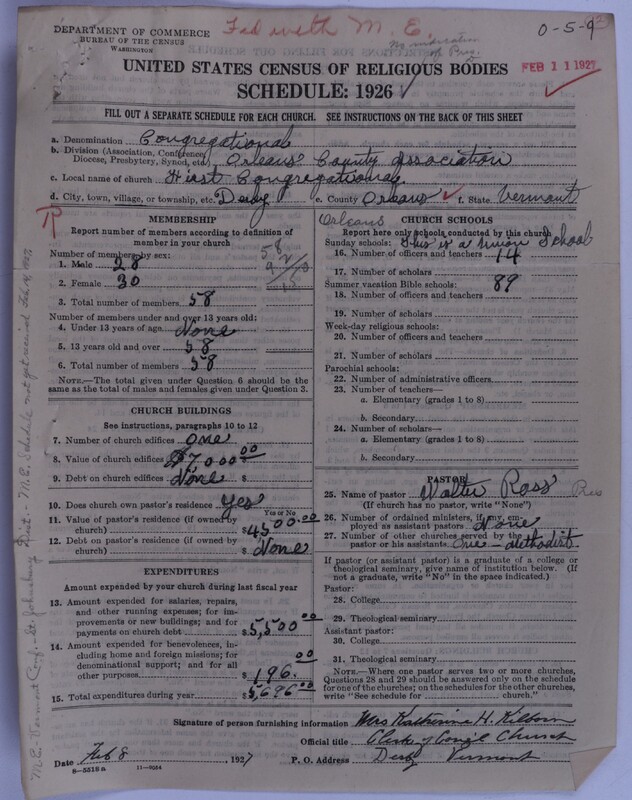 DEPARTMENT OF COMMERCE
BUREAU OF THE CENSUS
WASHINGTON
Fed with M. E.
No indication of Prog.
0-5-9
UNITED STATES CENSUS OF RELIGIOUS BODIES
FEB 11 1927
SCHEDULE: 1926
FILL OUT A SEPARATE SCHEDULE FOR EACH CHURCH. SEE INSTRUCTIONS ON THE BACK OF THIS SHEET
a. Denomination Congregational
b. Division (Association, Conference, Diocese, Presbytery, Synod, etc.) Orleans County Association
c. Local name of church First Congregational
d. City, town, village, or township, etc. Derby e. County Orleans f. State Vermont
MEMBERSHIP
Report number of members according to definition of
member in your church
Number of members by sex:
1. Male 28
2. Female 30
3. Total number of members 58
Number of members under and over 13 years old:
4. Under 13 years of age None
5. 13 years old and over 58
6. Total number of members 58
NOTE.—The total given under Question 6 should be the
same as the total of males and females given under Question 3.
CHURCH BUILDINGS
See instructions, paragraphs 10 to 12
7. Number of church edifices One
8. Value of church edifices $7,000.00
9. Debt on church edifices None $
10. Does church own pastor's residence Yes
Yes or No
11. Value of pastor's residence (if owned by
church) $4500.00
12. Debt on pastor's residence (if owned by
church) $ None
EXPENDITURES
Amount expended by your church during last fiscal year
13. Amount expended for salaries, repairs,
and other running expenses; for im-
provements or new buildings; and for
payments on church debt $5,500.00
14. Amount expended for benevolences, in-
cluding home and foreign missions; for
denominational support; and for all
other purposes $196.00
15. Total expenditures during year $5,696.00
Orleans
CHURCH SCHOOLS
Report here only schools conducted by this church
Sunday schools: This is a Union School
16. Number of officers and teachers 14
17. Number of scholars 89
Summer vacation Bible schools:
18. Number of officers and teachers
19. Number of scholars
Week-day religious schools:
20. Number of officers and teachers
21. Number of scholars
Parochial schools:
22. Number of administrative officers
23. Number of teachers—
a. Elementary (grades 1 to 8)
b. Secondary
24. Number of scholars—
a. Elementary (grades 1 to 8)
b. Secondary
PASTOR
25. Name of pastor Walter Ross Pres
(If church has no pastor, write "None")
26. Number of ordained ministers, if any, em-
ployed as assistant pastors None
27. Number of other churches served by the
pastor or his assistants One - Methodist
If pastor (or assistant pastor) is a graduate of a college or
theological seminary, give name of institution below. (If
not a graduate, write "No" in the space indicated.)
Pastor:
28. College
29. Theological seminary
Assistant pastor:
30. College
31. Theological seminary
NOTE.—Where one pastor serves two or more churches,
Questions 28 and 29 should be answered only on the schedule
for one of the churches; on the schedules for the other churches,
write "See schedule for church."
Signature of person furnishing information Mrs Katherine H. Kilborn
Official title Clerk of Cong'l Church
Date Feb 8, 1927 P. O. Address Derby Vermont
8-5518a 11-9034
M.E. Vermont Conf. - St. Johnsbury Dist. - M.E. Schedule not yet received Feb. 14, 1927.